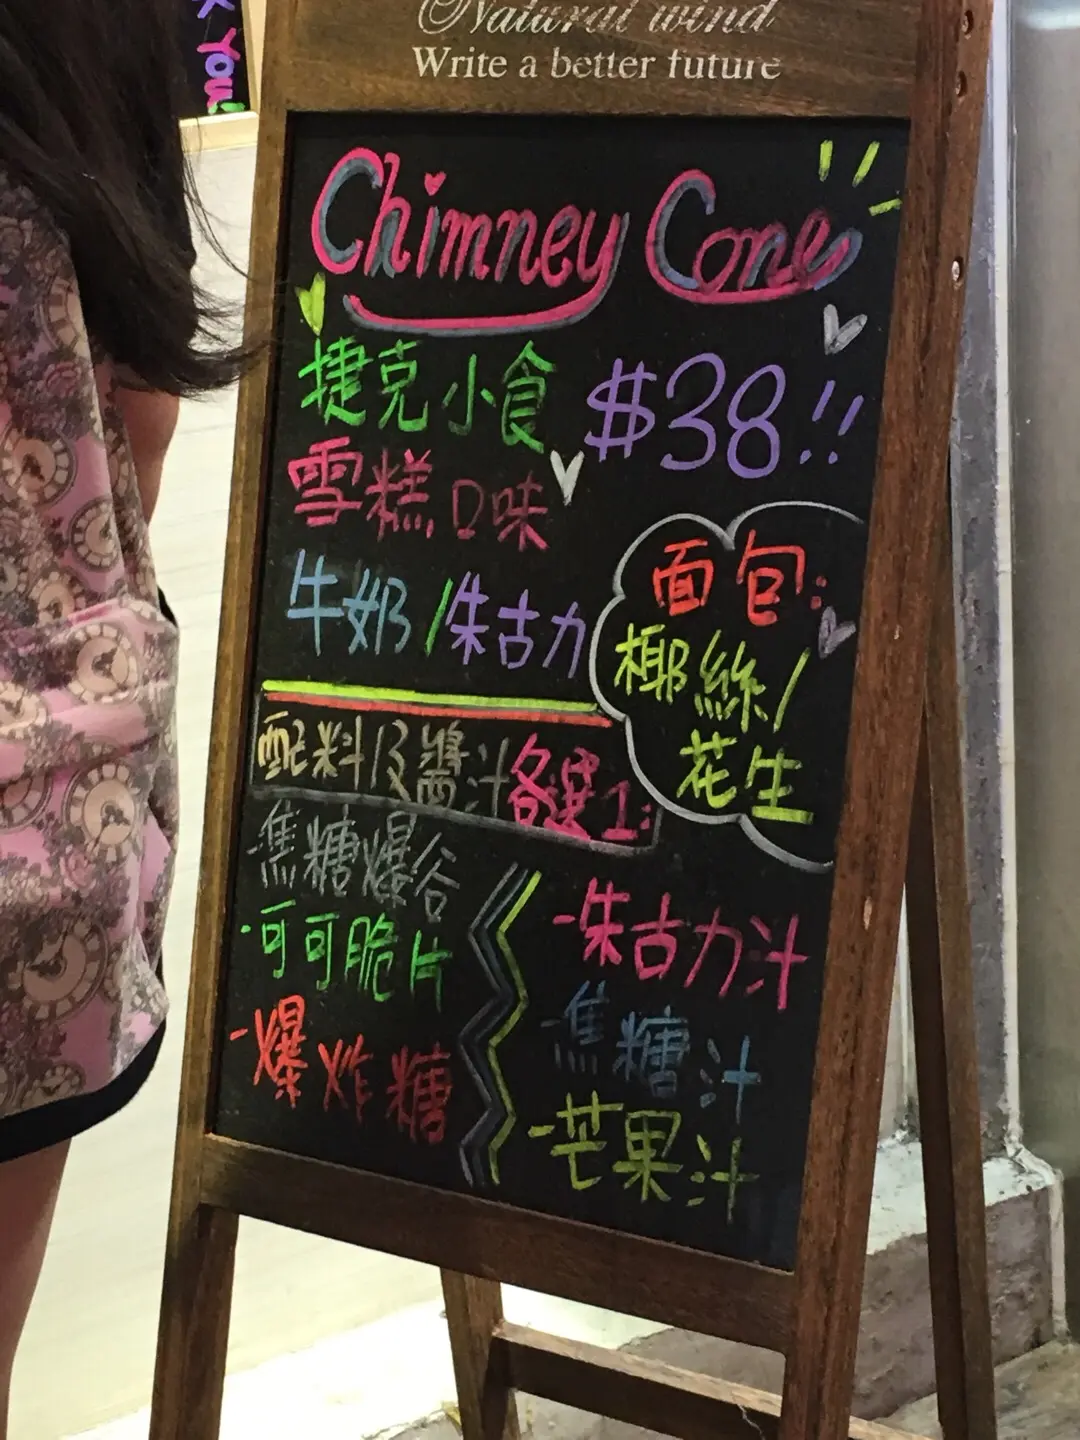 Natural wind
Write a better future
You!
Chimney Cone
捷克小食 $38!!
雪糕口味
牛奶/朱古力
面包:
椰絲/
花生
配料及醬汁各選1:
焦糖爆谷
·可可脆片
-爆炸糖
-朱古力汁
-焦糖汁
-芒果汁